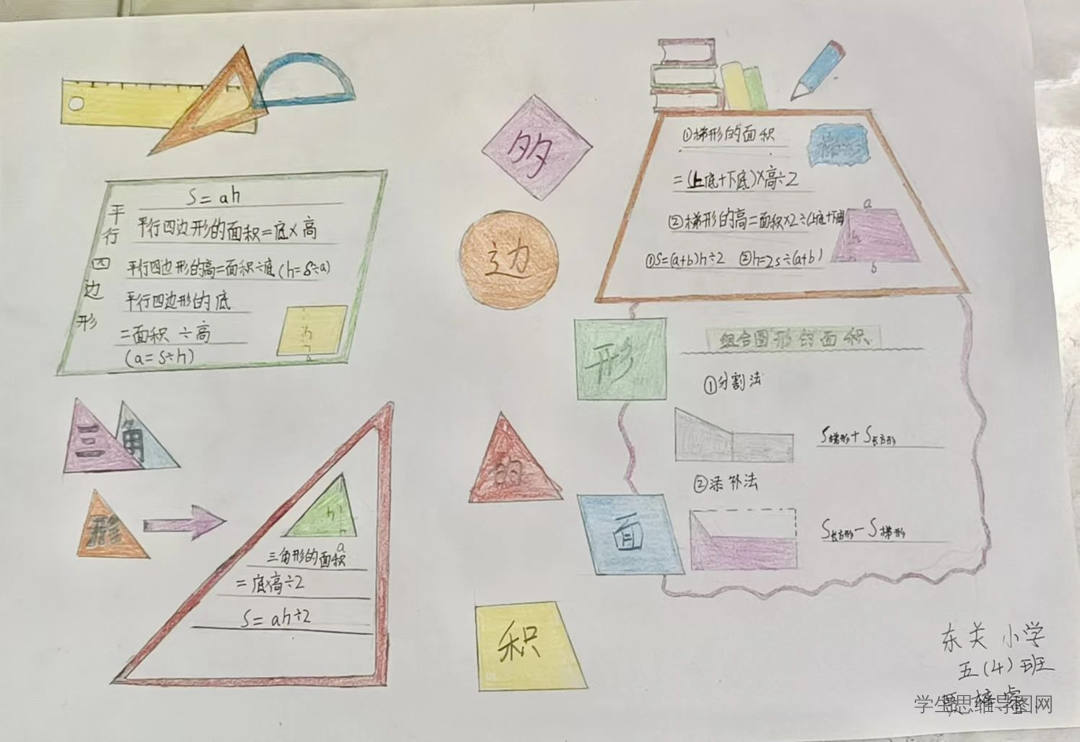 多
边
形
的
面
积
平行四边形
S=ah
平行四边形的面积=底×高
平行四边形的高=面积÷底(h=S÷a)
平行四边形的底
=面积÷高
(a=S÷h)
h
a
三角
形
h
a
三角形的面积
=底×高÷2
S=ah÷2
①梯形的面积
=(上底+下底)×高÷2
②梯形的高=面积×2÷(上底+下底)
①S=(a+b)h÷2 ②h=2s÷(a+b)
a
h
b
组合图形的面积
①分割法
S梯形+S长方形
②添补法
S长方形-S梯形
东关小学
五(4)班
学生思维导图网